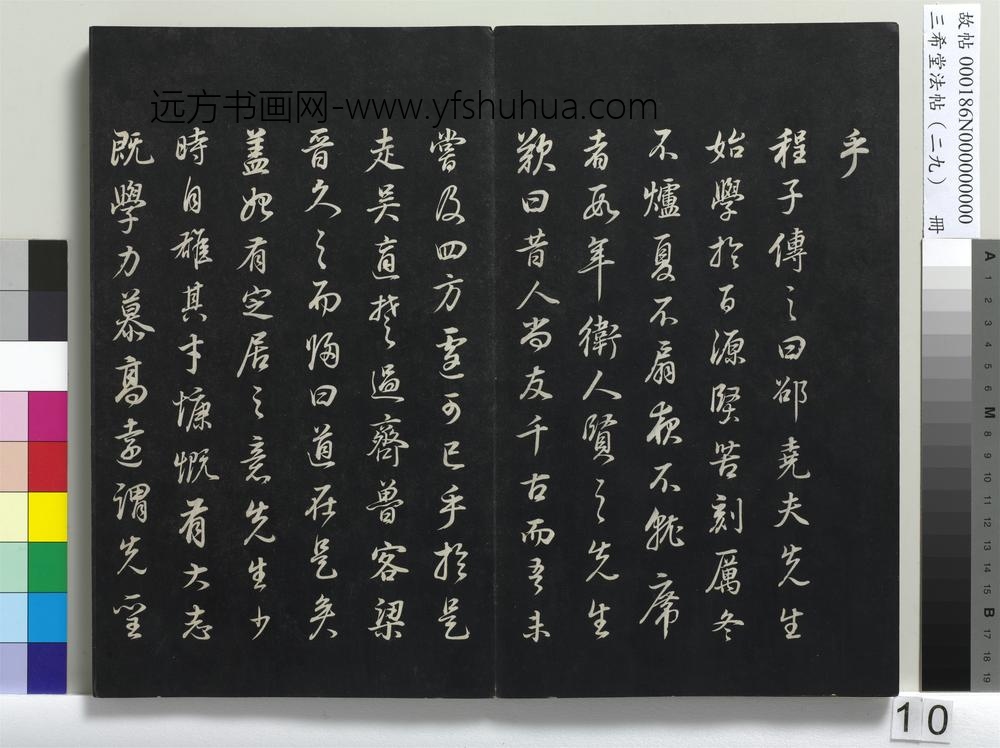 远方书画网-www.yfshuhua.com
乎
程子傳之曰邵堯夫先生
始學於百源堅苦刻厲冬
不爐夏不扇夜不就席
者數年衛人賢之先生
歎曰昔人尚友千古而吾未
嘗及四方遽可已乎於是
走吳適楚過齊魯客梁
晉久之而歸曰道在是矣
蓋始有定居之意先生少
時自雄其才慷慨有大志
既學力慕高遠謂先聖
故帖 000186N000000000
三希堂法帖(二九) 冊
A 1 2 3 4 5 6 M 8 9 10 11 12 13 14 15 B 17 18 19
10